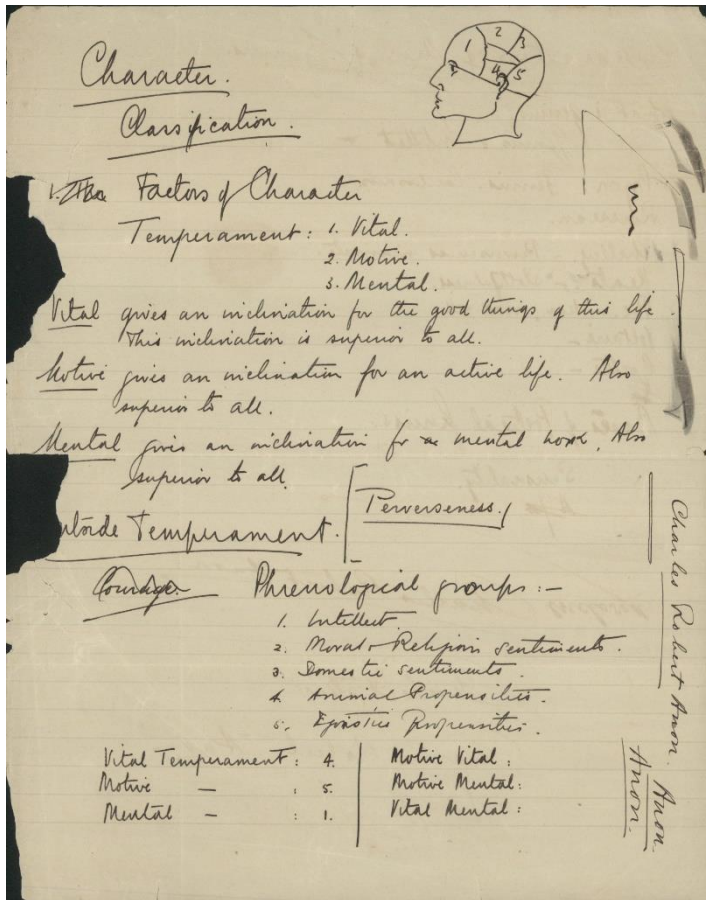 Character.
Classification.
1 2 3 4 5
1. The Factors of Character
Temperament: 1. Vital.
2. Motive.
3. Mental.
Vital gives an inclination for the good things of this life.
This inclination is superior to all.
Motive gives an inclination for an active life. Also
superior to all.
Mental gives an inclination for a mental work. Also
superior to all.
utside Temperament. [Perverseness.]
Courage. Phrenological groups:—
1. Intellect.
2. Moral & Religious sentiments.
3. Domestic sentiments.
4. Animal Propensities.
5. Egoistic Propensities.
Vital Temperament: 4.
Motive — : 5.
Mental — : 1.
Motive Vital:
Motive Mental:
Vital Mental:
Charles Robert Anon.
Anon.
Anon.